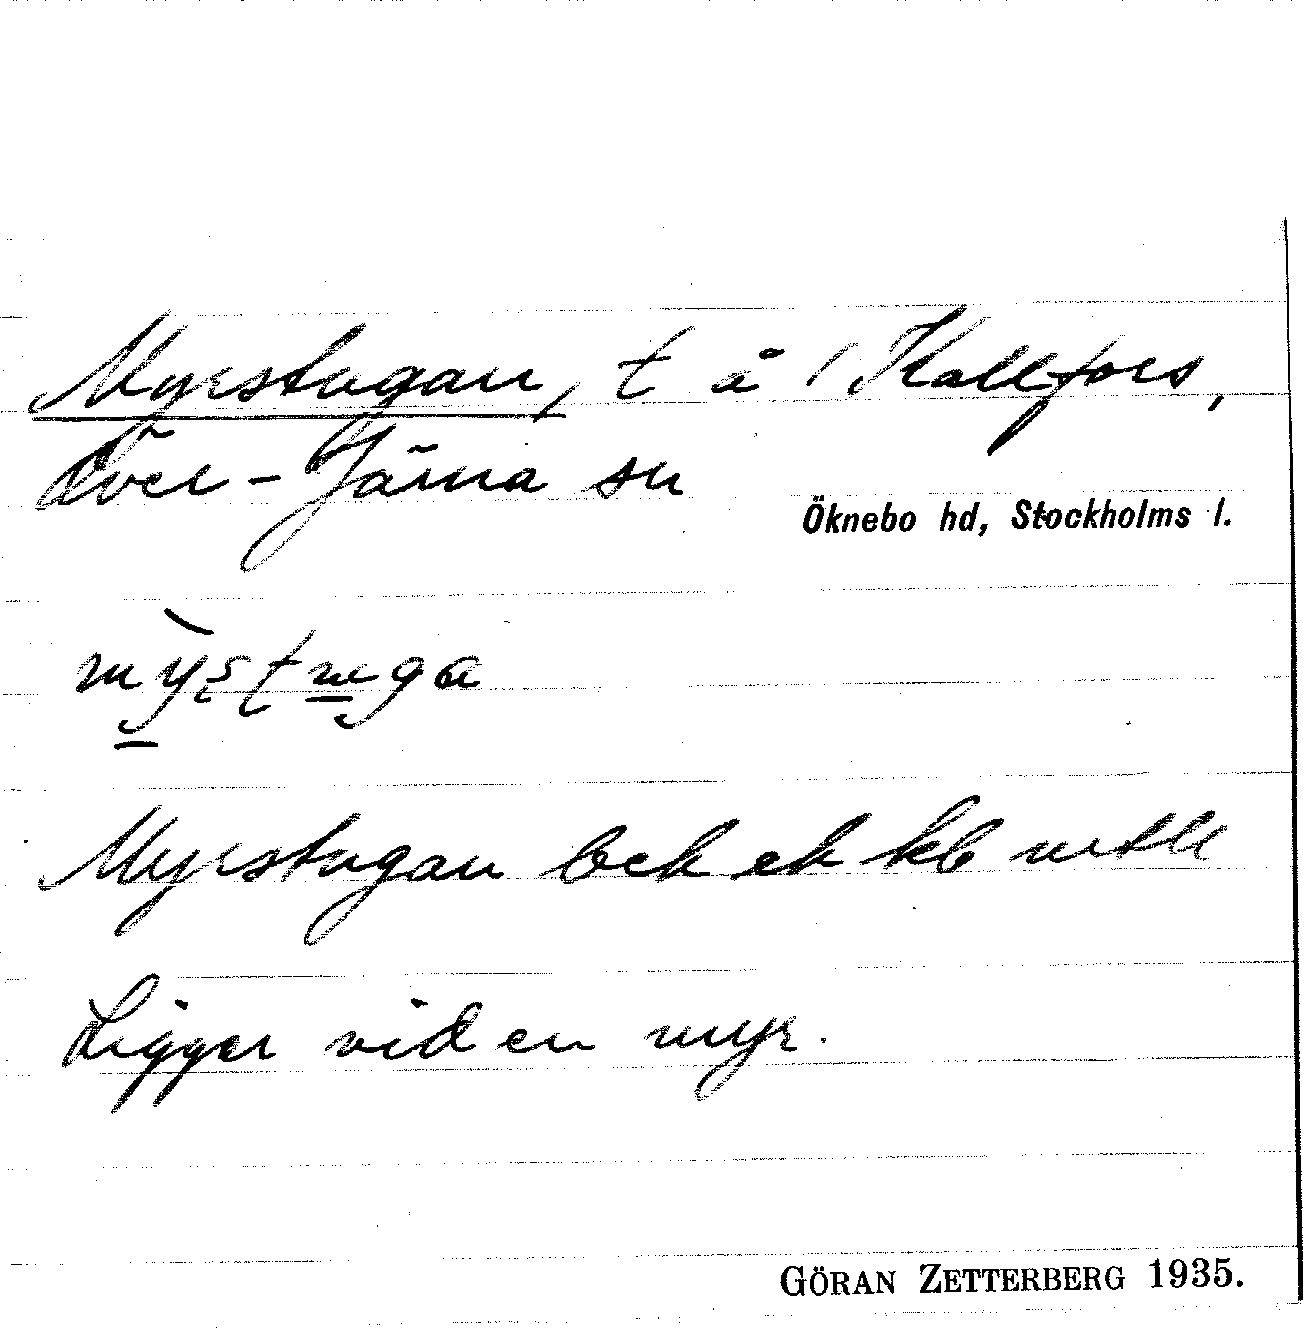 Myrstugan, t å / Kallfors,
Över-Järna sn
Öknebo hd, Stockholms l.
Myrstugan bek ek kb
Ligger vid en myr.
GÖRAN ZETTERBERG 1935.